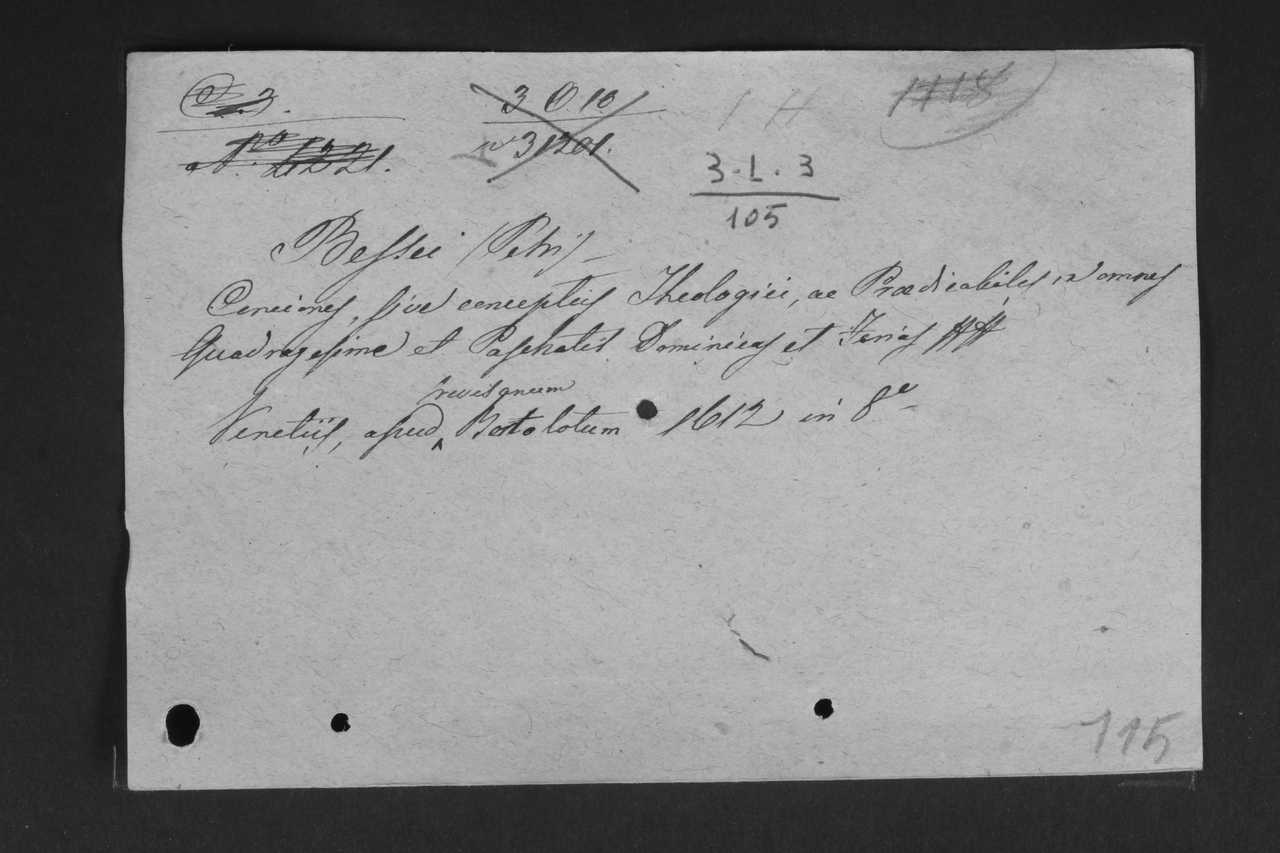 3 O 10
nº 31201.
1 H
1118
3 - L . 3
105
Bessei (Petri)
Conciones, sive conceptus Theologici, ac Prædicabiles in omnes
Quadragesime et Paschatis Dominicas et Ferias
Venetiis, apud Bortolotum 1612 in 8º
115